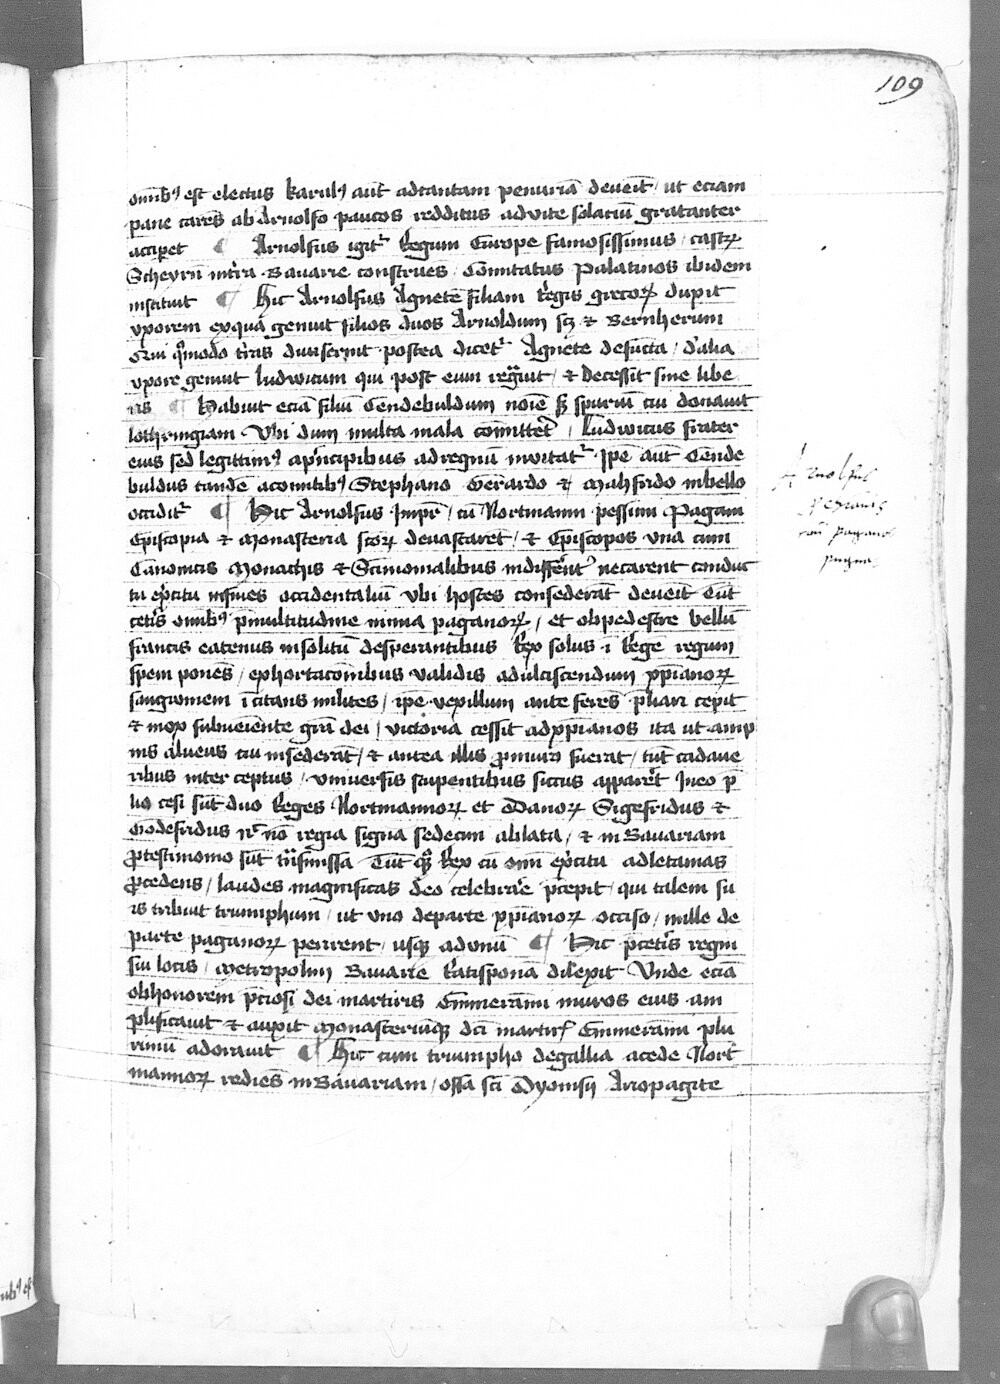 109
omnib9 est electus karul9 aut̄ adtantam penuriā deveīt / ut eciam
pane carēs ab Arnolfo paucos redditus ad vite solaciū gratanter
accip̄et ¶ Arnolfus igit̉ Regum Europe famosissimus / castꝝ
Scheyrn̄ infra Bavarie construēs / Comitatus Palatinos ibidem
instituit ¶ Hic Arnolfus Agnetē filiam Regis grecoꝝ duxit
uxorem exqua genuit filios duos Arnoldum scꝫ et Bernherum
Qui qͦmodo t̄ras diuiserūt postea dicet̉ Agnete defūcta / d'alia
uxore genuit ludwicum qui post eum regͣuit / et decessit sine libe
ris ¶ Habuit eciā filiū Cendebuldum noīe sꝫ spuriū cui donauit
lothringiam Vbi dum multa mala cōmittet̉ / Ludwicus frater
eius sed legittim9 a pͥncipibus ad regnū inuitat̉ Ipe aut̄ Cende
buldus tandē a comitib9 Stephano Gerardo et Mahfrido inbello
occidit̉ ¶ Hic Arnolfus Impr̄ / cū Nortmanni pessimi Pagani
Episcopia et Monasteria sc̄oꝝ deuastarēt / et Episcopos una cum
Canonicis Monachis et Sc̄imonialibus indiffērēt̉ necarent conduc
to ex̄citu in fines occidentaliū ubi hostes consederāt deueīt Cūt
cet̉is omib9 p̄ multitudine nimia paganoꝝ / et ob pedestre bellū
francis eatenus insolitū desperantibus Rex solus ī Rege regum
spem ponēs / exhortacōnibus validis ad ulciscendum xp̄ianoꝝ
sanguinem īcitans milites / ip̄e vexillum ante ferēs p̄liari cepit
et mox subueiente gr̄a dei / victoria cessit ad xp̄ianos ita ut amp
nis alueus cui insederāt / et antea illis ꝓ muro fuerat / tūc cadaue
ribus inter ceptus / vniuersis stupentibus siccus apparēt In eo p̄
lio cesi sūt duo Reges Nortmannoꝝ et Danoꝝ Sigefridus et
Godefridus nͨ nō regia signa sedecim ablata / et in Bauariam
ꝓ testimonio sūt tͣnsmissa Tūc qͦꝫ Rex cū om̄i ex̄citu ad letanias
ꝓcedens / laudes magnificas deo celebrare p̄cepit / qui talem su
is tribuit triumphum / ut uno de parte xp̄ianoꝝ occiso / mille de
parte paganoꝝ perirent / usqꝫ ad vnū ¶ Hic p̄cet̉is regni
sui locis / Metropolim Bauarie Ratispona dilexit Vnde eciā
ob honorem p̄ciosi dei martiris Emmerānni muros eius am
plificauit et auxit Monasteriūqꝫ dc̄i martir̄ Emmeranni plu
rimū adorauit ¶ Hic cum triumpho de gallia a cede Nort
mannoꝝ rediēs in Bauariam / ossa sc̄i Dyonisii Ariopagite
Arnolfus
pagan9
pugna